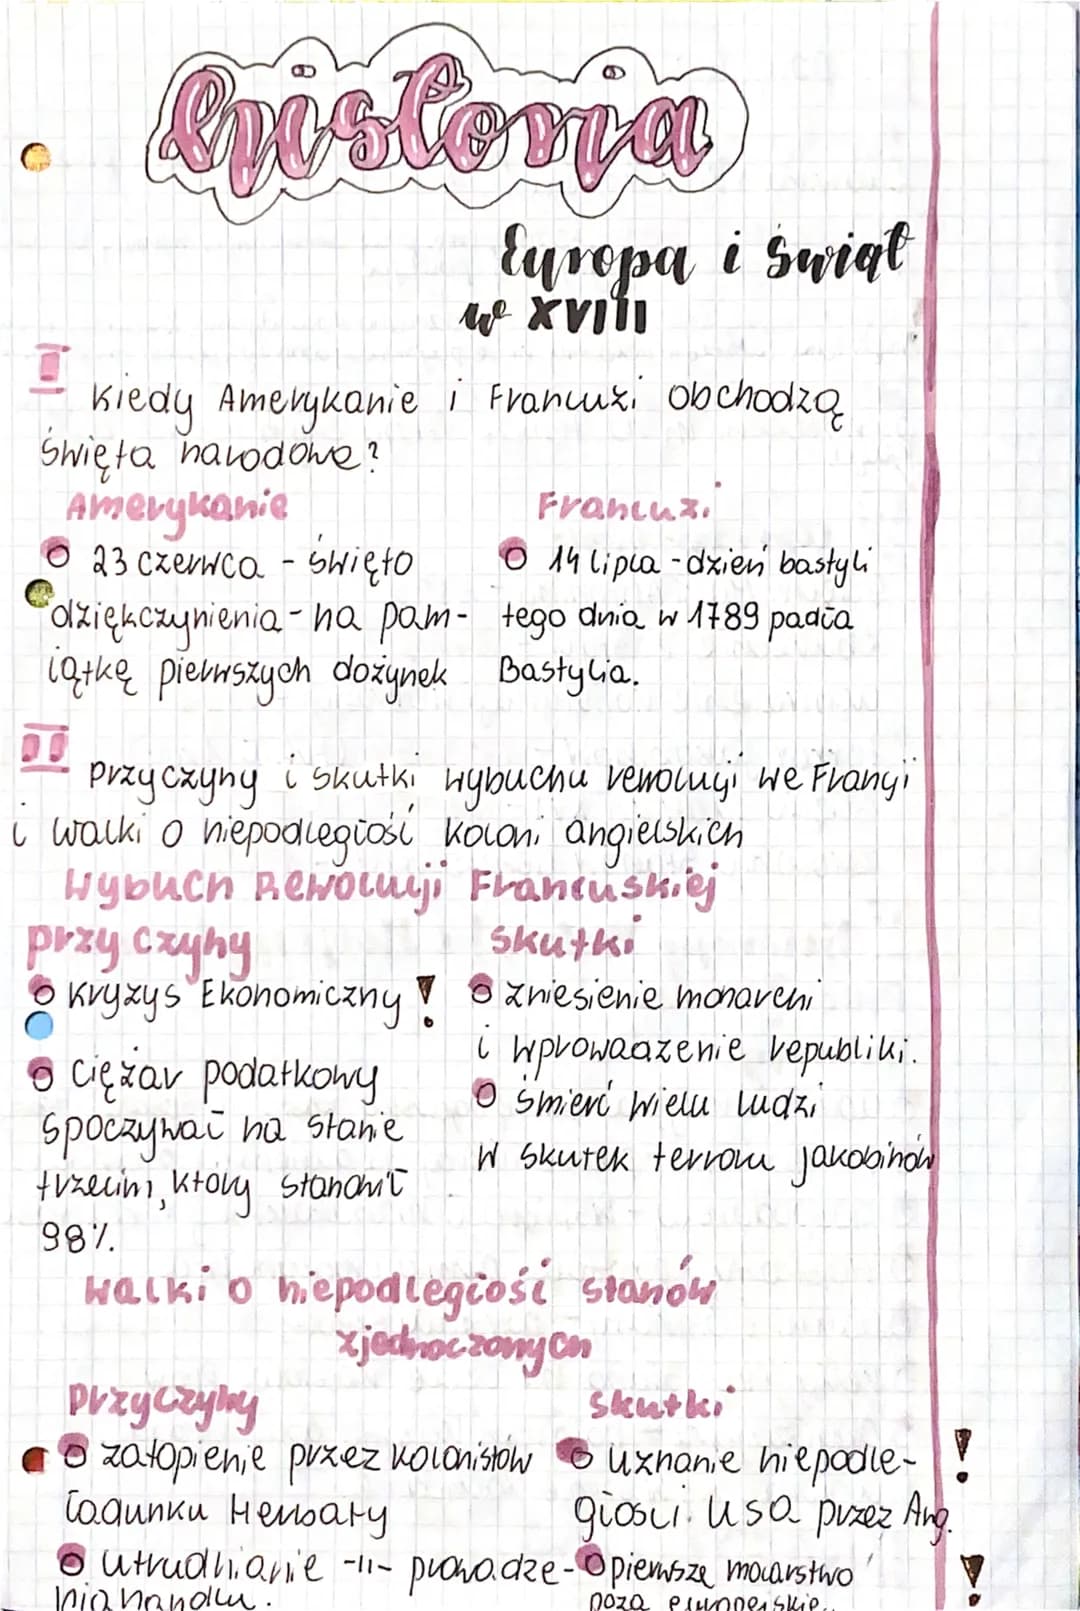 historia
Europa i świat
w XVIII
I
Kiedy Amerykanie i Francuzi obchodzą
święta narodowe?
Amerykanie
23 czerwca - święto
dziękczynienia - na pam-
iątkę pierwszych dożynek
Francuzi
14 lipca - dzień bastyli
tego dnia w 1789 padła
Bastylia.
II
Przyczyny i skutki wybuchu rewolucji we Francji
i walki o niepodległość koloni angielskich
Wybuch Rewolucji Francuskiej
przyczyny
Kryzys Ekonomiczny !
Ciężar podatkowy
spoczywał na stanie
trzecim, który stanowił
98%.
Skutki
zniesienie monarchi
i wprowadzenie republiki.
śmierć wielu ludzi
w skutek terroru jakobinów
Walki o niepodległość stanów
zjednoczonych
Przyczyny
zatopienie przez kolonistów
ładunku Herbaty
utrudnianie -II- prowadze-
nia handlu.
Skutki
uznanie niepodle- !
głości USA przez Ang.
pierwsze mocarstwo !
poza europejskie.